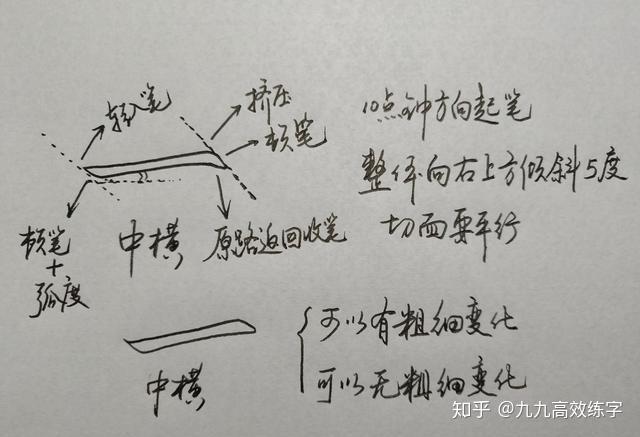 轻笔
挤压
顿笔
10点钟方向起笔
整体向右上方倾斜5度
切面要平行
顿笔
+
弧度
中横
原路返回收笔
中横
可以有粗细变化
可以无粗细变化
知乎 @九九高效练字